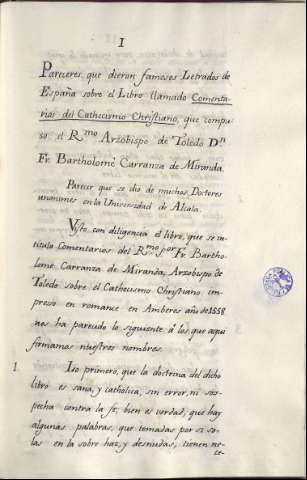 1
Pareceres que dieron famosos Letrados de
España sobre el Libro llamado Comenta-
rios del Cathecismo Christiano, que compu-
so el Rmo Arzobispo de Toledo Dn
Fr. Bartholomé Carranza de Miranda.
Parecer que se dio de muchos Doctores
unanimes en la Universidad de Alcala.
Visto con diligencia el libro, que se in-
titula Comentarios del Rmo Sor Fr. Bartho-
lomé Carranza de Miranda, Arzobispo de
Toledo sobre el Cathecismo Christiano im-
preso en romance en Amberes año de 1558
nos ha parecido lo siguiente á los que aqui
firmamos nuestros nombres.
1 Lo primero, que la doctrina del dicho
libro es sana, y catholica, sin error, ni sos-
pecha contra la fe; bien es verdad, que hay
algunas palabras, que tomadas por si so-
las en la sobre haz, y desnudas, tienen ne-
ce-